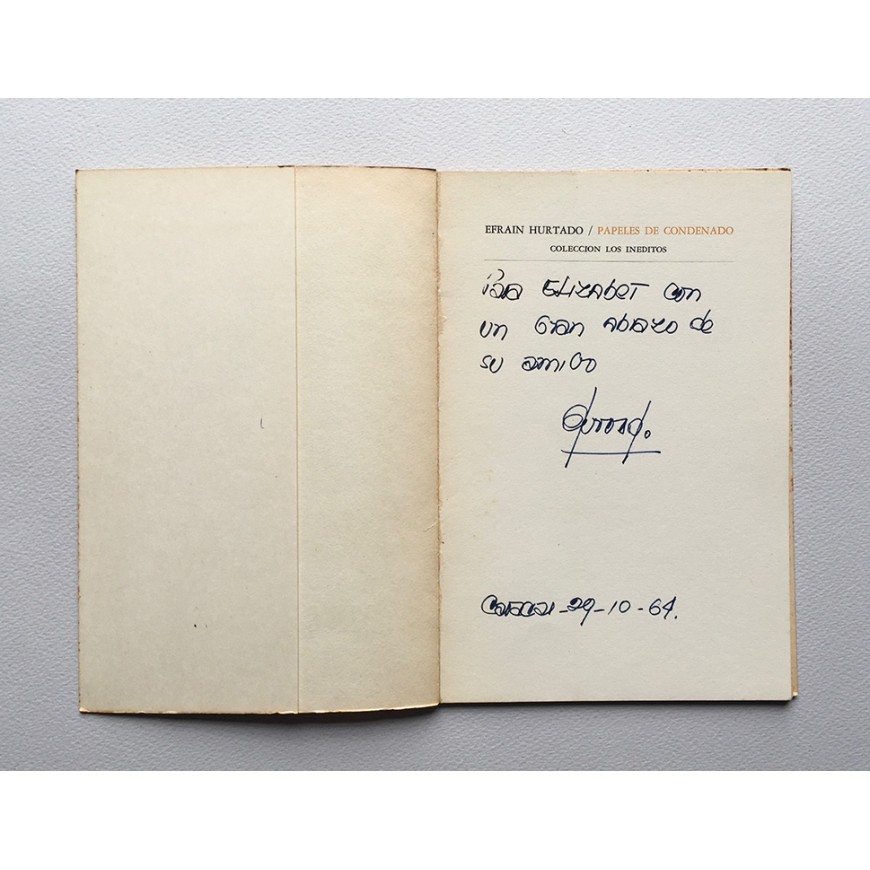 EFRAIN HURTADO / PAPELES DE CONDENADO
COLECCION LOS INEDITOS
Para Elizabet con
un Gran Abrazo de
su amigo
Caracas - 29 - 10 - 64.